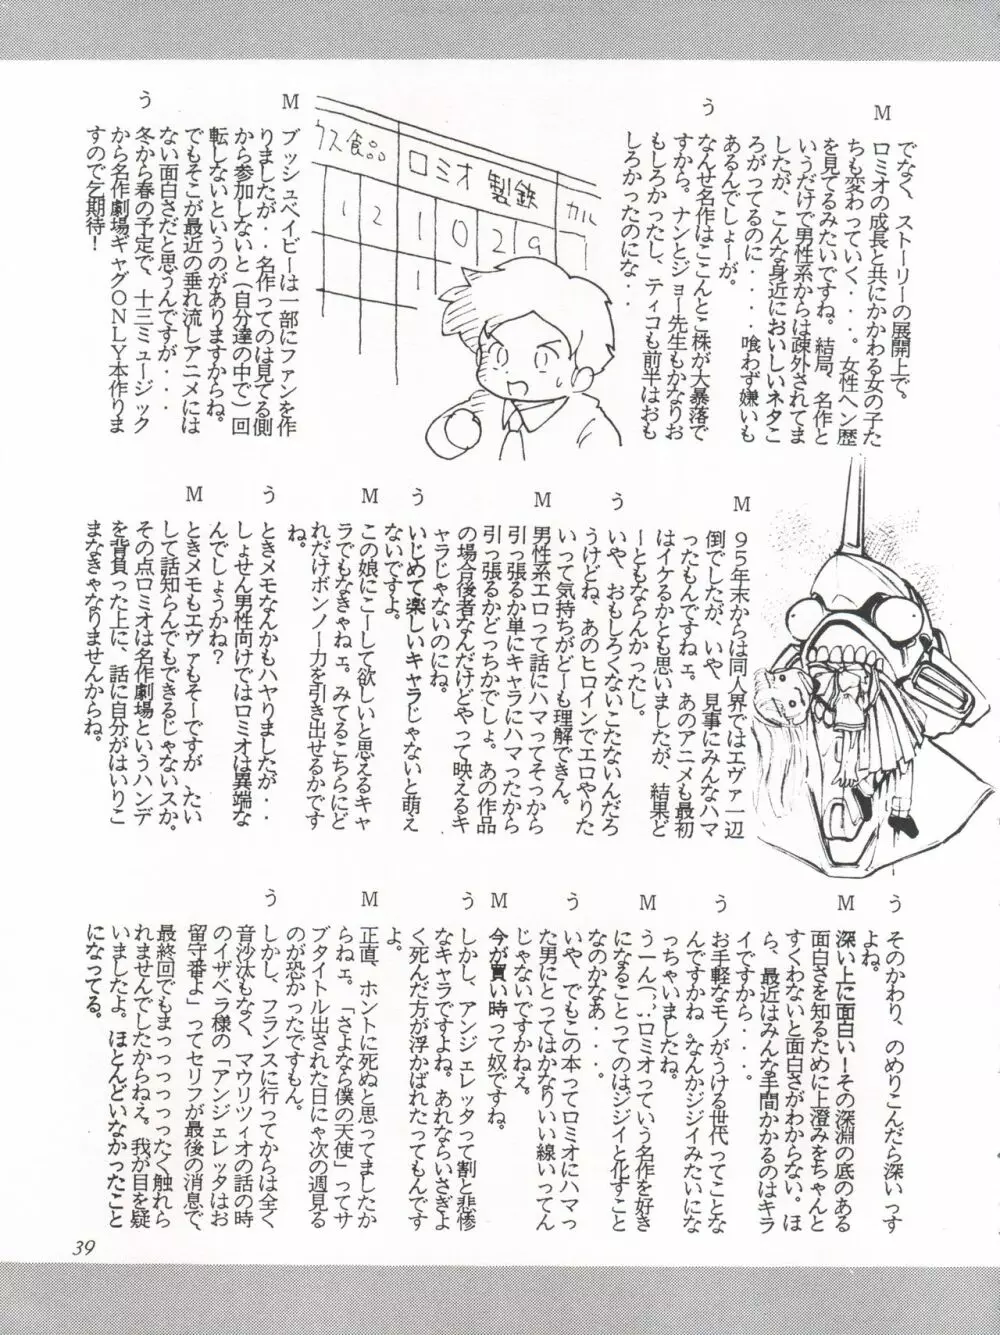 M
でなく、ストーリーの展開上で。
ロミオの成長と共にかかわる女の子た
ちも変わっていく・・・。女性ヘン歴
を見てるみたいですね。結局、名作と
いうだけで男性系からは疎外されてま
したが、こんな身近においしいネタこ
ろがってるのに・・・喰わず嫌いも
あるんでしょーが。
う
なんせ名作はここんとこ株が大暴落で
すから。ナンとジョー先生もかなりお
もしろかったし、ティコも前半はおも
しろかったのにな・・
M
ブッシュベイビーは一部にファンを作
りましたが・・名作ってのは見てる側
から参加しないと(自分達の中で)回
転しないというのがありますからね。
でもそこが最近の垂れ流しアニメには
ない面白さだと思うんですが・・・
う
冬から春の予定で、十三ミュージック
から名作劇場ギャグONLY本作りま
すので乞期待!
ウス食品
ロミオ 製鉄
カル
1 2 1 0 2 9
1
M
95年末からは同人界ではエヴァ一辺
倒でしたが、いや、見事にみんなハマ
ったもんですねェ。あのアニメも最初
はイケるかとも思いましたが、結果ど
ーともならんかったし。
う
いや、おもしろくないこたないんだろ
うけどね、あのヒロインでエロやりた
いって気持ちがどーも理解できん。
M
男性系エロって話にハマってそっから
引っ張るか単にキャラにハマったから
引っ張るかどっちかでしょ。あの作品
の場合後者なんだけどやって映えるキ
ャラじゃないのにね。
う
いじめて楽しいキャラじゃないと萌え
ないですよ。
M
この娘にこーして欲しいと思えるキャ
ラでもなきゃねェ。みてるこちらにど
れだけボンノー力を引き出せるかです
ね。
う
ときメモなんかもハヤりましたが・・
しょせん男性向けではロミオは異端な
んでしょうかね?
M
ときメモもエヴァもそーですが、たい
して話知らんでもできるじゃないスか。
その点ロミオは名作劇場というハンデ
を背負った上に、話に自分がはいりこ
まなきゃなりませんからね。
う
そのかわり、のめりこんだら深いっす
よね。
M
深い上に面白い!その深淵の底のある
面白さを知るために上澄みをちゃんと
すくわないと面白さがわからない。ほ
ら、最近はみんな手間かかるのはキラ
イですから・・・。
う
お手軽なモノがうける世代ってことな
んですかね。なんかジジイみたいにな
っちゃいましたね。
M
うーん(…ロミオっていう名作を好き
になることってのはジジイと化すこと
なのかなあ・・・。
う
いや、でもこの本ってロミオにハマっ
た男にとってはかなりいい線いってん
じゃないですかねえ。
M
今が買い時って奴ですね。
う
しかし、アンジェレッタって割と悲惨
なキャラですよね。あれならいさぎよ
く死んだ方が浮かばれたってもんです
よ。
M
正直、ホントに死ぬと思ってましたか
らねェ。「さよなら僕の天使」ってサ
ブタイトル出された日にゃ次の週見る
のが恐かったですもん。
う
しかし、フランスに行ってからは全く
音沙汰もなく、マウリツィオの話の時
のイザベラ様の「アンジェレッタはお
留守番よ」ってセリフが最後の消息で、
最終回でもまっっっっったく触れら
れませんでしたからねえ。我が目を疑
いましたよ。ほとんどいなかったこと
になってる。
39